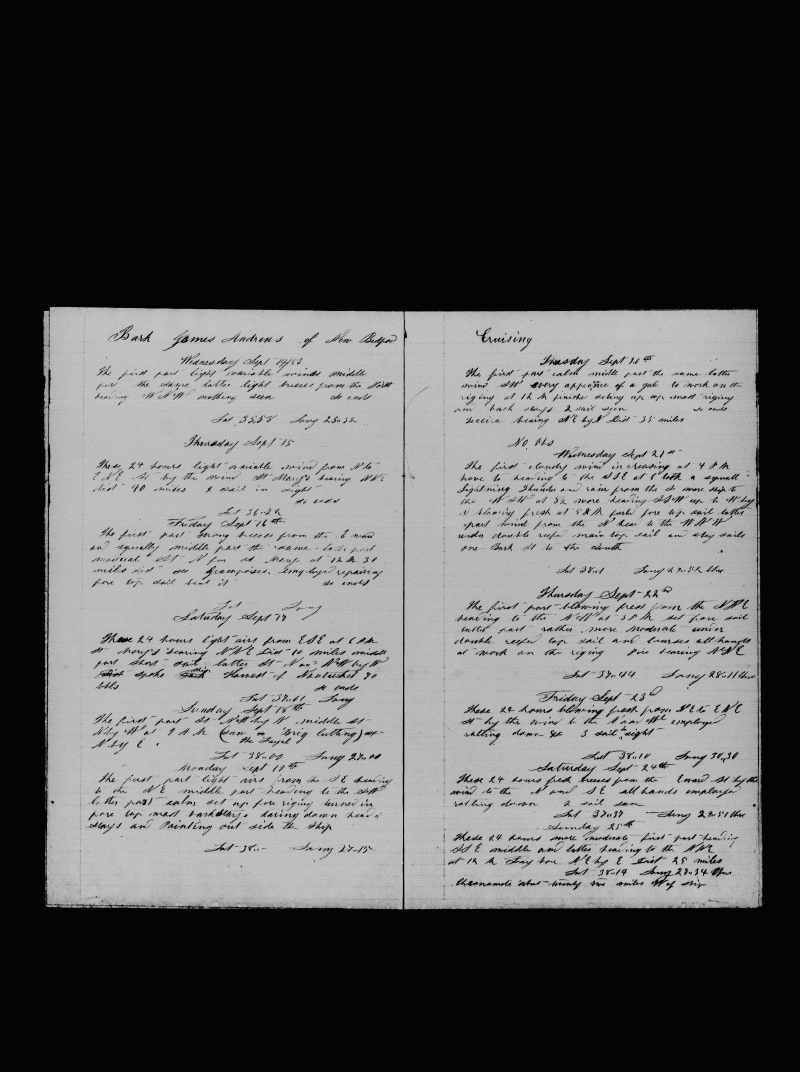 Bark James Andrews of New Bedford
Wednesday Sept 14/53
The first part light variable winds middle
part the same latter light breeses from the North
heading W N W nothing seen So ends
Lat 35.58 Long 25.32
Thursday Sept 15
These 24 hours light variable wind from N to
E N E St by the wind St Mary's bearing N N E
dist 40 miles 2 sail in sight
so ends
Lat 36-22
Friday Sept 16th
The first part strong breeses from the E
and squally middle part the same latter part
moderat St N for St Marys at 12 M 30
miles dist grampuses employed repairing
fore top sail bent it so ends
Lat Long
Saturday Sept 17
These 24 hours light airs from E S E at 6 P M
St Mary's bearing N N E Dist 10 miles middle
part short sail latter St N and N W by W
spoke ship Harvest of Nantucket 70
bbls so ends
Lat 37.01 Long
Sunday Sept 18th
The first part St N W by N middle St
N by W at 9 A M (saw a Brig cutting) St
N by E the Fayal
Lat 38.00 Long 27.00
Monday Sept 19th
The first part light airs from the S E heading
to the N E middle part heading to the S W
latter part calm set up fore riging turned in
fore top mast backstays daring down head
stays and Painting out side the Ship
Lat 38.- Long 27-15
Cruising
Tuesday Sept 20th
The first part calm midle part the same latter
wind SW every apperince of a gale to work on the
riging at 12 M finishe seting up top mast riging
and back stays 2 sail seen so ends
bearing N E by N Dist 35 miles
No bbs
Wednesday Sept 21st
The first cloudy wind increasing at 4 P M
hove to heading to the S S E at 6 took a squall
lightning thunder and rain from the S wore ship to
the W S W at 8½ wore heading S S W up to W by
S blowing fresh at 5 A M furld fore top sail latter
part wind from the N hear to the W N W
under double reefed main top sail and stay sails
one Bark St to the South
Lat 38.1 Long 29.32
Thursday Sept 22nd
The first part blowing fresh from the N N E
heading to the N W at 3 P M set fore sail
latter part rather more moderate under
double reefed top sail and courses all hands
at work on the riging Pico bearing N N E
Lat 37.44 Long 28.11
Friday Sept 23d
These 24 hours blowing fresh from N E to E N E
St by the wind to the N and W employed
ratling down &c 3 sail in sight
Lat 38.10 Long 30.30
Saturday Sept 24th
These 24 hours fresh breeses from the Eward St by the
wind to the N and S E all hands employed
ratling down 2 sail seen
Lat 37.37 Long 29.51
Sunday 25th
These 24 hours more moderate first part heading
S S E middle and latter heading to the N N E
at 12 M Fay bore N E by E Dist 25 miles
Lat 38.14 Long 29.34
Chronometer about twenty miles W of ship